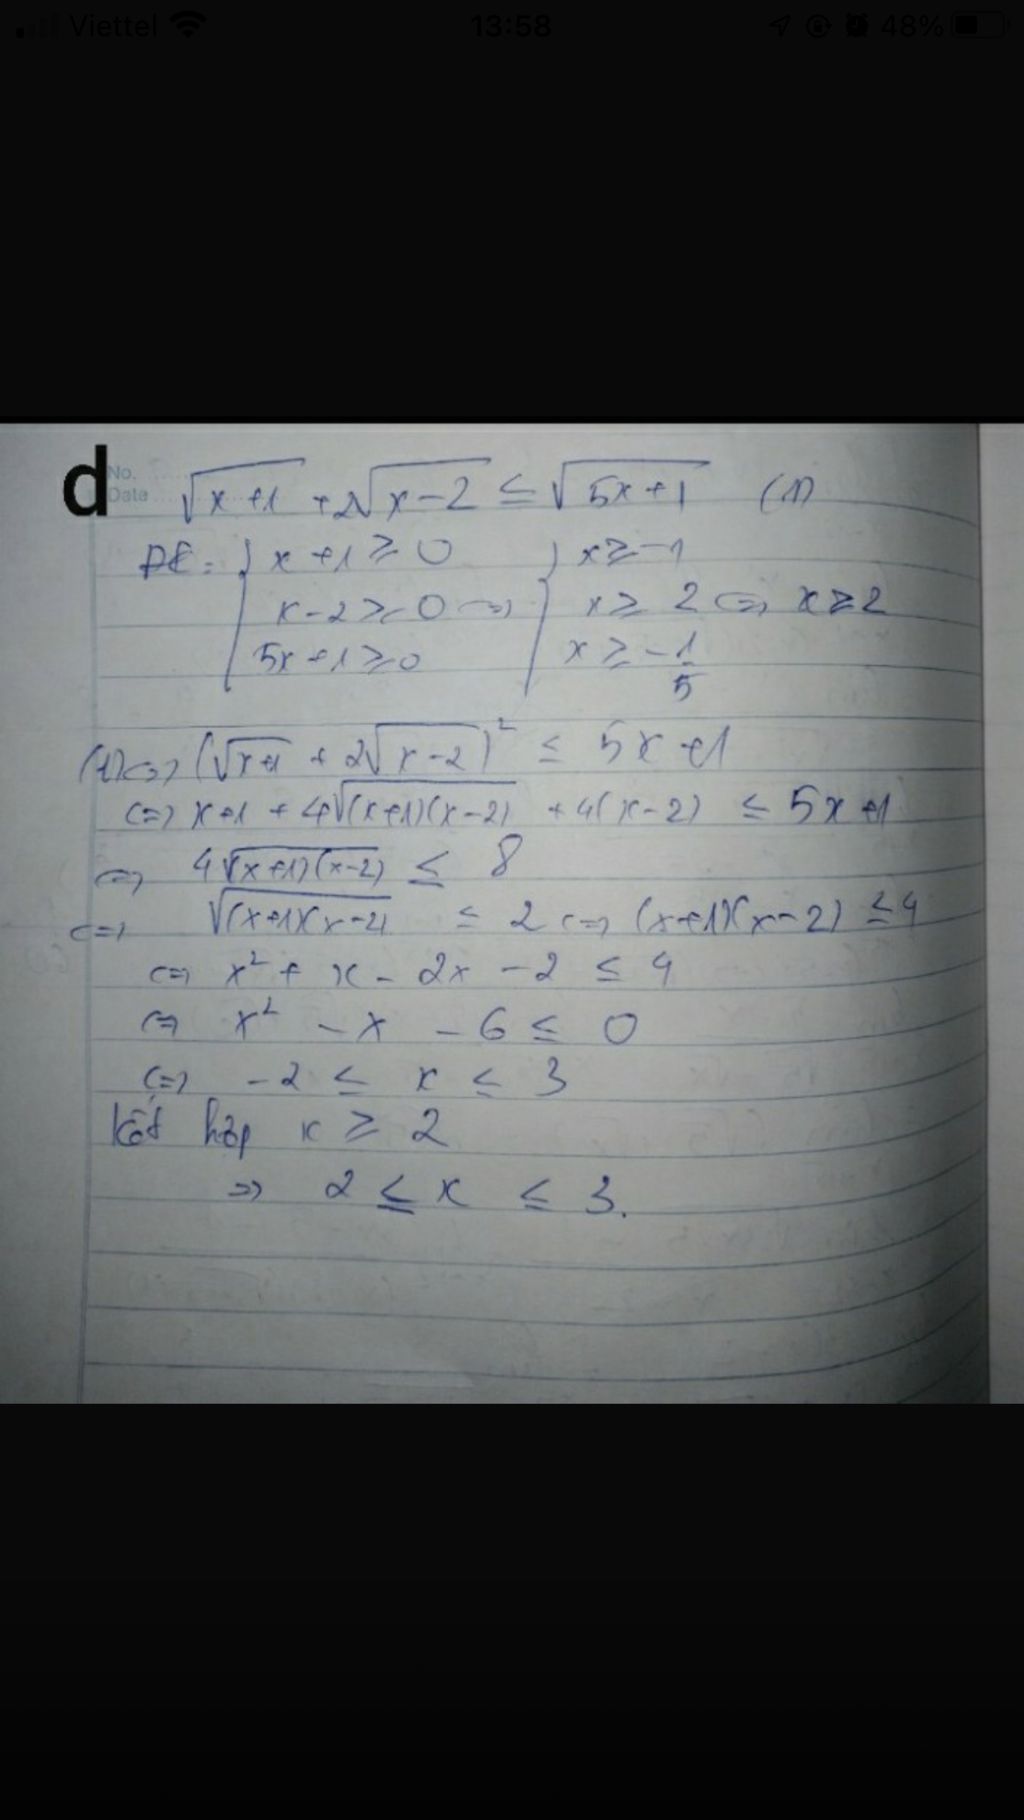 Viettel 13:58 48%
d No.
Date
√(x+1) + 2√(x-2) ≤ √(5x+1) (1)
ĐK: { x+1 ≥ 0 { x ≥ -1
x-2 ≥ 0 <=> x ≥ 2 <=> x ≥ 2
5x+1 ≥ 0 x ≥ -1/5
(1) <=> (√(x+1) + 2√(x-2))² ≤ 5x+1
<=> x+1 + 4√((x+1)(x-2)) + 4(x-2) ≤ 5x+1
<=> 4√((x+1)(x-2)) ≤ 8
<=> √((x+1)(x-2)) ≤ 2 <=> (x+1)(x-2) ≤ 4
<=> x² + x - 2x - 2 ≤ 4
<=> x² - x - 6 ≤ 0
<=> -2 ≤ x ≤ 3
Kết hợp x ≥ 2
=> 2 ≤ x ≤ 3.